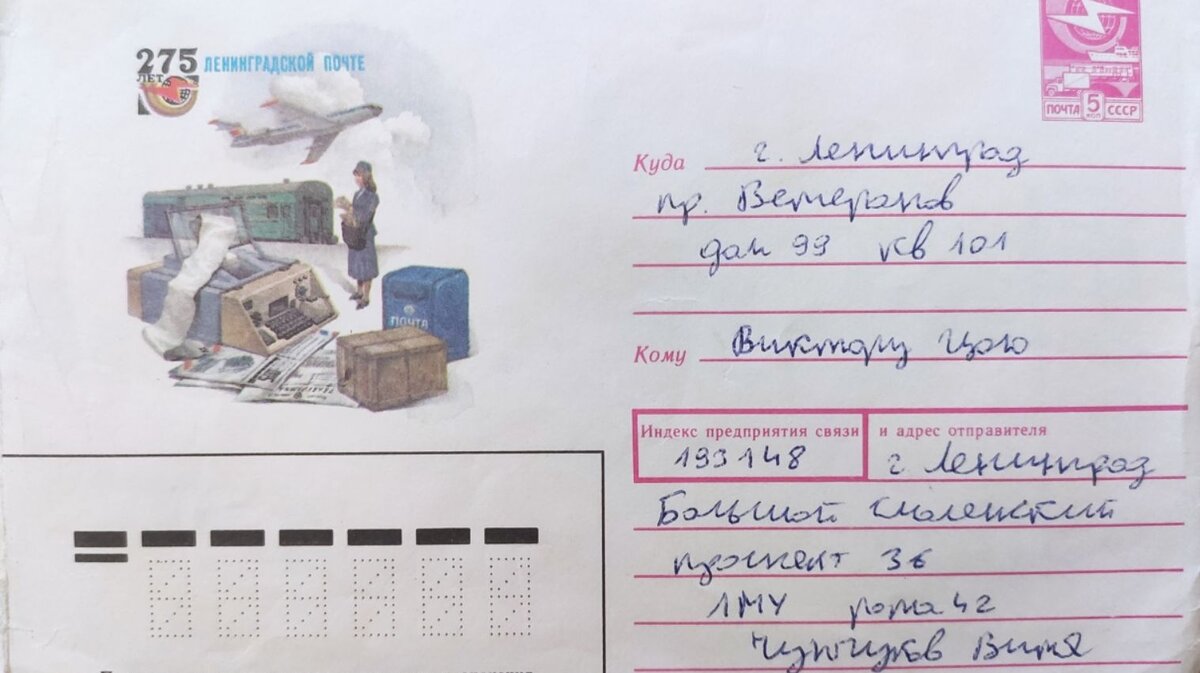 275 ЛЕТ ЛЕНИНГРАДСКОЙ ПОЧТЕ
ПОЧТА 5 КОП СССР
ПОЧТА
Куда г. Ленинград
пр. Ветеранов
дом 99 кв 101
Кому Виктору Цою
Индекс предприятия связи и адрес отправителя
193148 г Ленинград
Большой Смоленский
проспект 36
ЛМУ рота 42
Витя